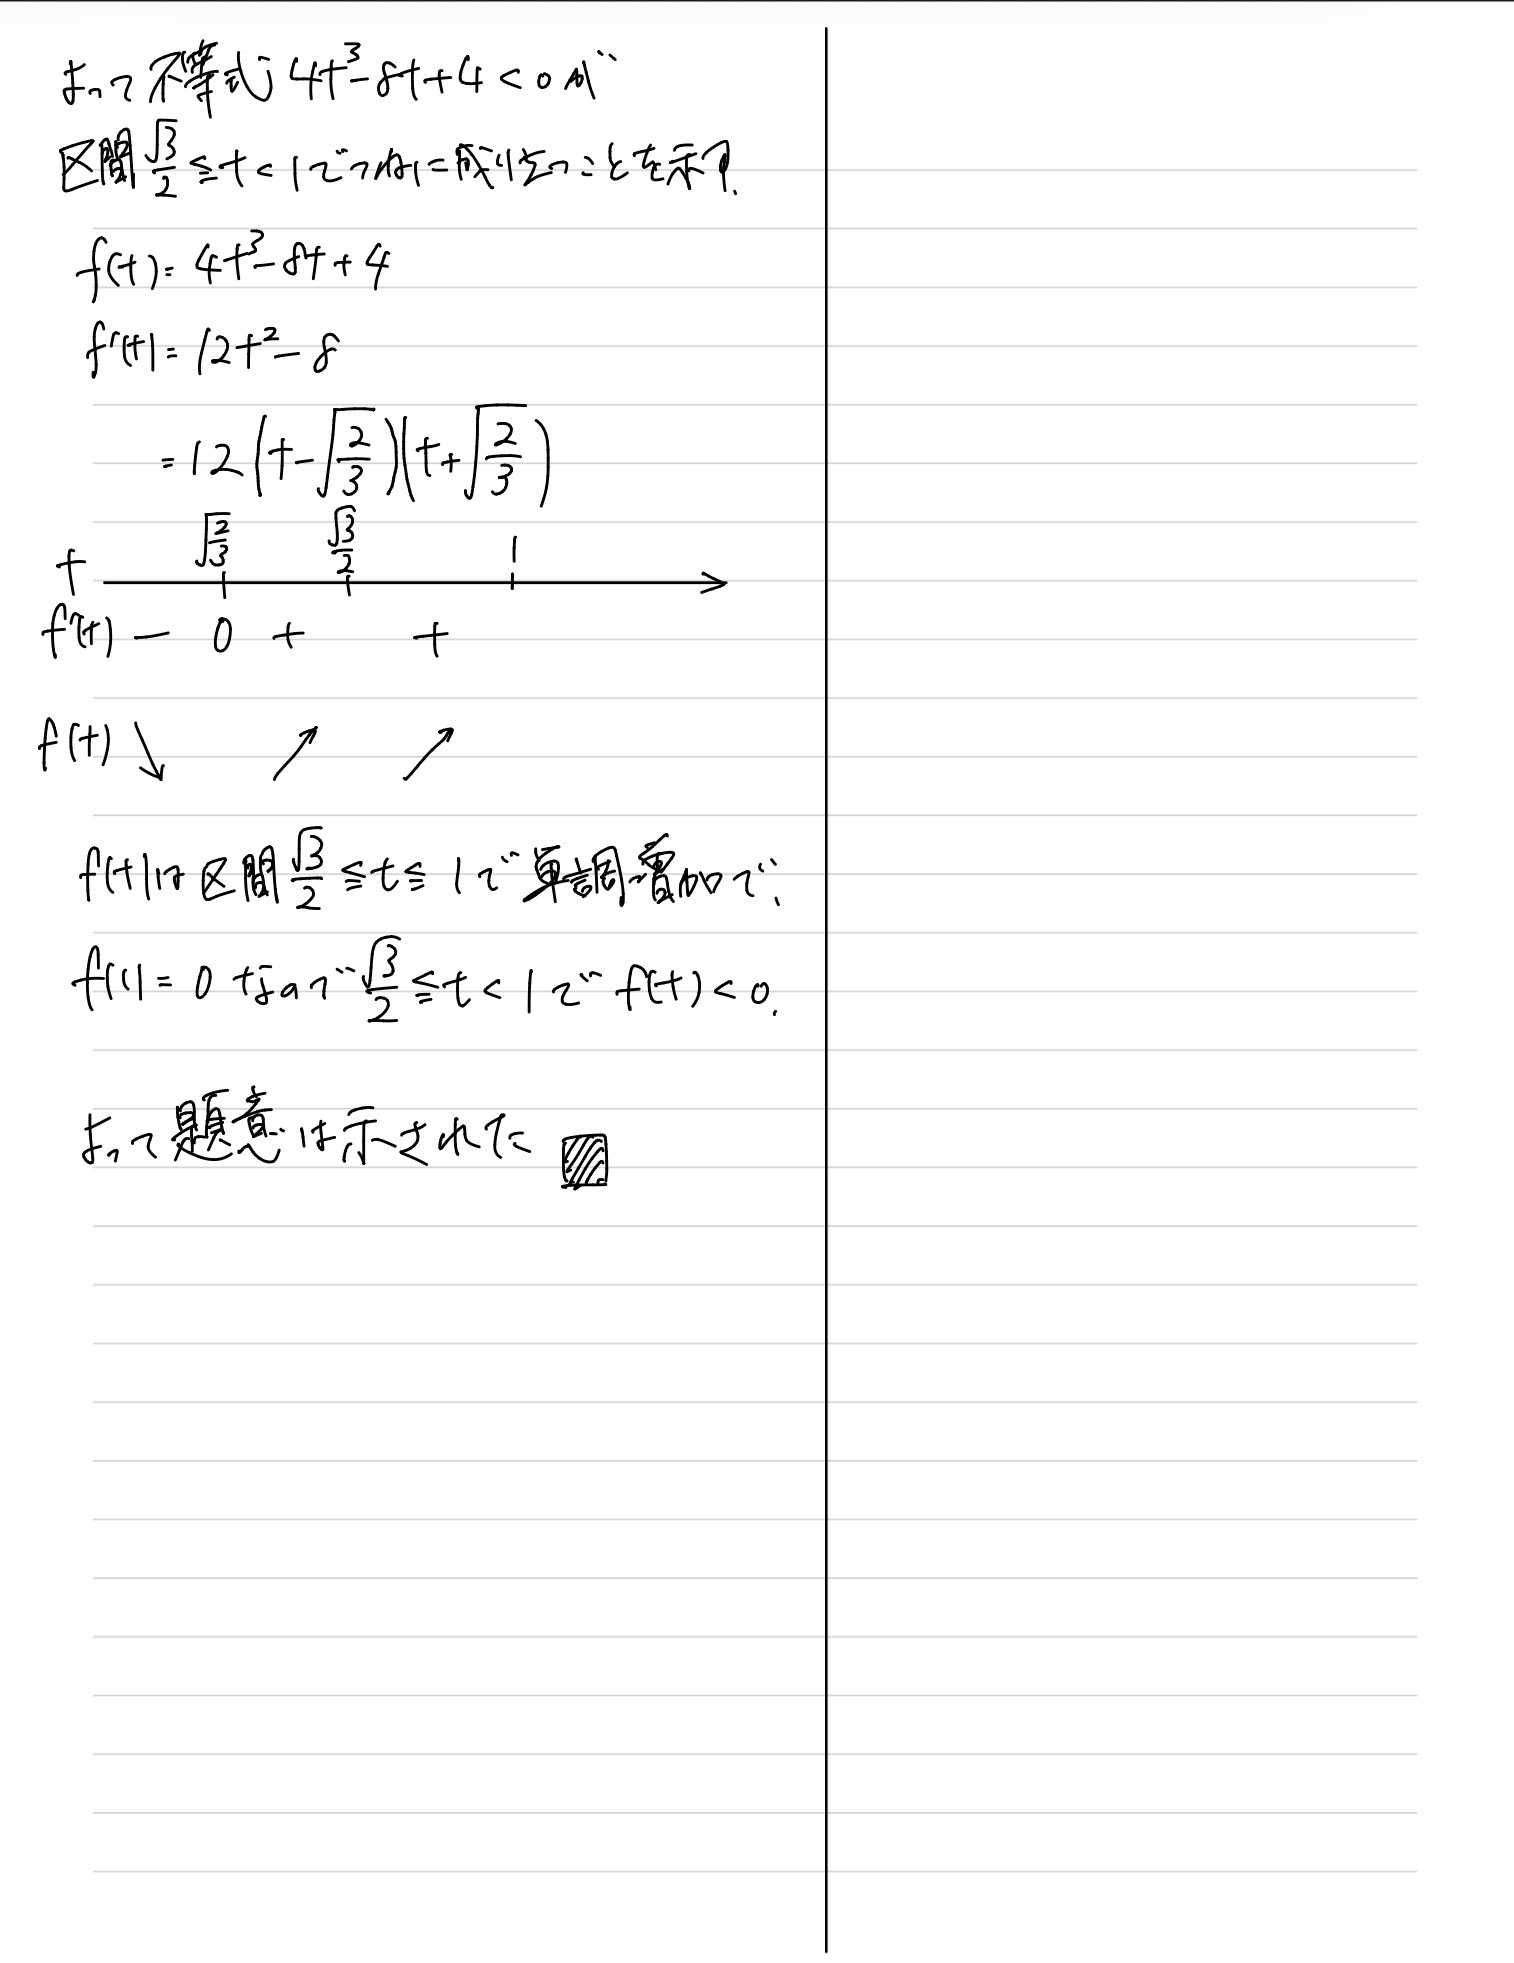 よって不等式 4t³-8t+4<0 が
区間 √3/2 ≦ t < 1 でつねに成り立つことを示す.
f(t) = 4t³-8t+4
f'(t) = 12t²-8
= 12(t-√(2/3))(t+√(2/3))
t √(2/3) √3/2 1
f'(t) - 0 + +
f(t) ↘ ↗ ↗
f(t)は区間 √3/2 ≦ t ≦ 1 で単調増加で、
f(1) = 0 なので √3/2 ≦ t < 1 で f(t) < 0.
よって題意は示された